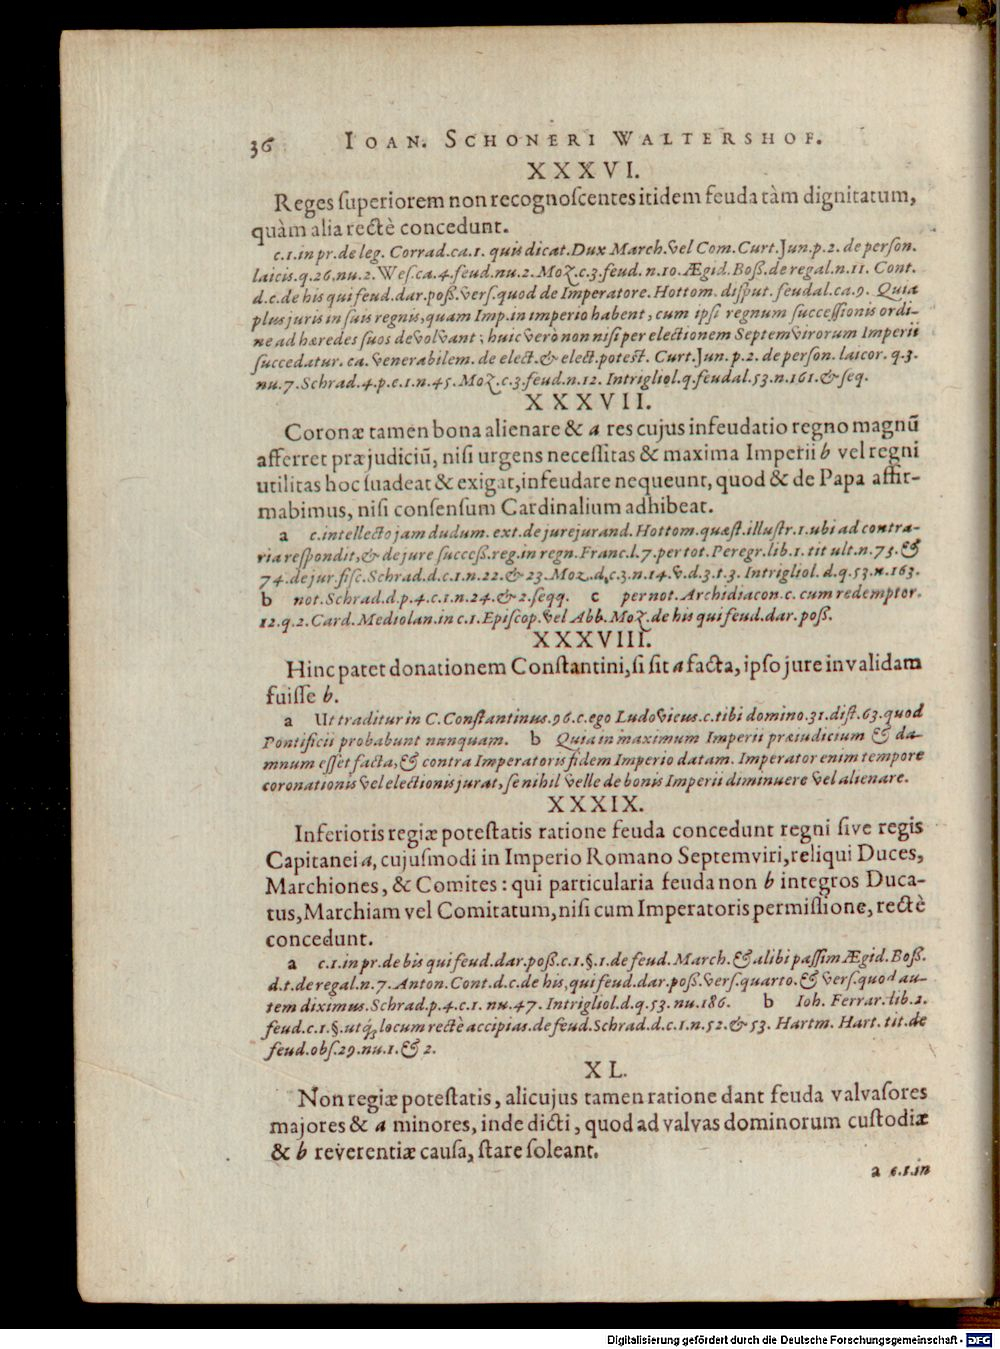 36 IOAN. SCHONERI WALTERSHOF.
XXXVI.
Reges superiorem non recognoscentes itidem feuda tàm dignitatum,
quàm alia rectè concedunt.
c.1.in pr.de leg. Corrad.ca.1. quis dicat.Dux March.vel Com.Curt.Jun.p.2. de person.
laicis.q.26.nu.2.Wes.ca.4.feud.nu.2.Moz.c.3.feud. n.10.Ægid.Boß.de regal.n.11. Cont.
d.c.de his qui feud.dar.poß.vers.quod de Imperatore.Hottom. disput.feudal.ca.9. Quia
plus juris in suis regnis,quam Imp.in imperio habent, cum ipsi regnum successionis ordi-
ne ad hæredes suos devolvant; huic vero non nisi per electionem Septemvirorum Imperii
succedatur. ca. venerabilem. de elect.& elect.potest. Curt.Jun. p.2. de person. laicor. q.3.
nu.7.Schrad.4.p.c.1.n.45.Moz.c.3.feud.n.12. Intrigliol.q.feudal.53.n.161.& seq.
XXXVII.
Coronæ tamen bona alienare & a res cujus infeudatio regno magnũ
afferret præjudiciũ, nisi urgens necessitas & maxima Imperii b vel regni
utilitas hoc suadeat & exigat,infeudare nequeunt, quod & de Papa affir-
mabimus, nisi consensum Cardinalium adhibeat.
a c.intellecto jam dudum. ext.de jurejurand. Hottom.quæst.illustr.1.ubi ad contra-
ria respondit,& de jure succeß.reg.in regn.Franc.l.7.per tot.Peregr.lib.1. tit ult.n.73.&
74.de jur.fisc.Schrad.d.c.1.n.22.& 23.Moz.d.c.3.n.14.v.d.3.t.3. Intrigliol. d.q.53.n.163.
b not.Schrad.d.p.4.c.1.n.24.& 2.seqq. c per not.Archidiacon.c. cum redemptor.
12.q.2.Card.Mediolan.in c.1.Episcop.vel Abb.Moz.de his qui feud.dar.poß.
XXXVIII.
Hinc patet donationem Constantini,si sit a facta, ipso jure invalidam
fuisse b.
a Ut traditur in C.Constantinus.96.c.ego Ludovicus.c.tibi domino.31.dist.63.quod
Pontificii probabunt nunquam. b Quia in maximum Imperii præiudicium & da-
mnum esset facta,& contra Imperatoris fidem Imperio datam. Imperator enim tempore
coronationis vel electionis jurat, se nihil velle de bonis Imperii diminuere vel alienare.
XXXIX.
Inferioris regiæ potestatis ratione feuda concedunt regni sive regis
Capitanei a, cujusmodi in Imperio Romano Septemviri,reliqui Duces,
Marchiones, & Comites: qui particularia feuda non b integros Duca-
tus,Marchiam vel Comitatum,nisi cum Imperatoris permissione, rectè
concedunt.
a c.1.in pr.de bis qui feud.dar.poß.c.1.§.1.de feud. March.& alibi passim Ægid.Boß.
d.t.de regal.n.7.Anton.Cont.d.c.de his,qui feud.dar.poß.vers.quarto.& vers.quod au-
tem diximus.Schrad.p.4.c.1. nu.47. Intrigliol.d.q.53.nu.186. b Ioh. Ferrar.lib.2.
feud.c.1.§.utq́;locum rectè accipias.de feud.Schrad.d.c.1.n.52.& 53. Hartm. Hart. tit.de
feud.obs.29.nu.1.& 2.
XL.
Non regiæ potestatis, alicujus tamen ratione dant feuda valvasores
majores & a minores, inde dicti, quod ad valvas dominorum custodiæ
& b reverentiæ causa, stare soleant.
a c.1.in
Digitalisierung gefördert durch die Deutsche Forschungsgemeinschaft - DFG